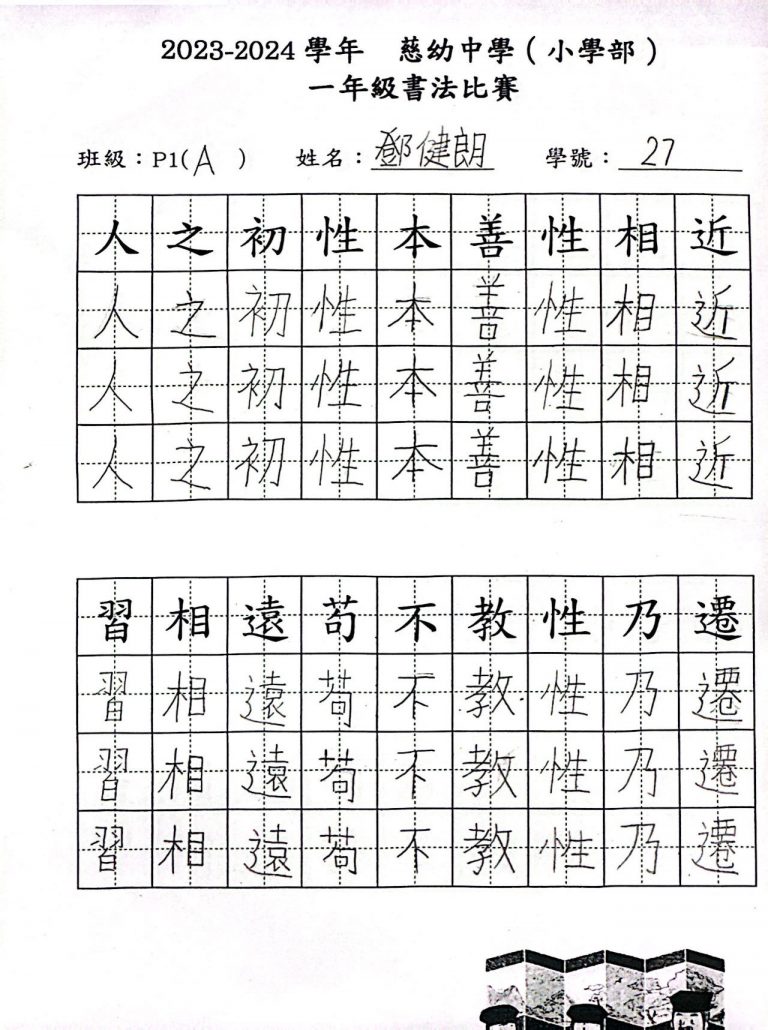 2023-2024 學年 慈幼中學（小學部）
一年級書法比賽
班級：P1(A) 姓名：鄧健朗 學號：27
人之初性本善性相近
人之初性本善性相近
人之初性本善性相近
人之初性本善性相近
習相遠苟不教性乃遷
習相遠苟不教性乃遷
習相遠苟不教性乃遷
習相遠苟不教性乃遷